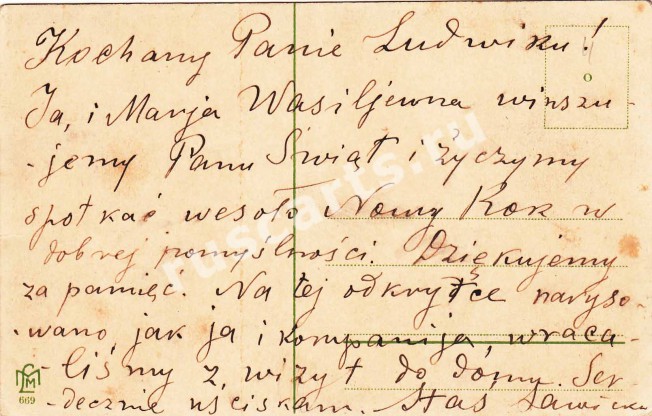 Kochany Panie Ludwiku!
Ja, i Marja Wasiljewna winszu-
-jemy Panu Świąt i życzymy
spotkać wesoło Nowy Rok w
dobrej pomyślności. Dziękujemy
za pamięć. Na tej odkrytce naryso-
-wano, jak ja i kompanija, wraca-
-liśmy z wizyt do domu. Ser-
-decznie uściskam. Staś Sawicki
669
ruscarts.ru